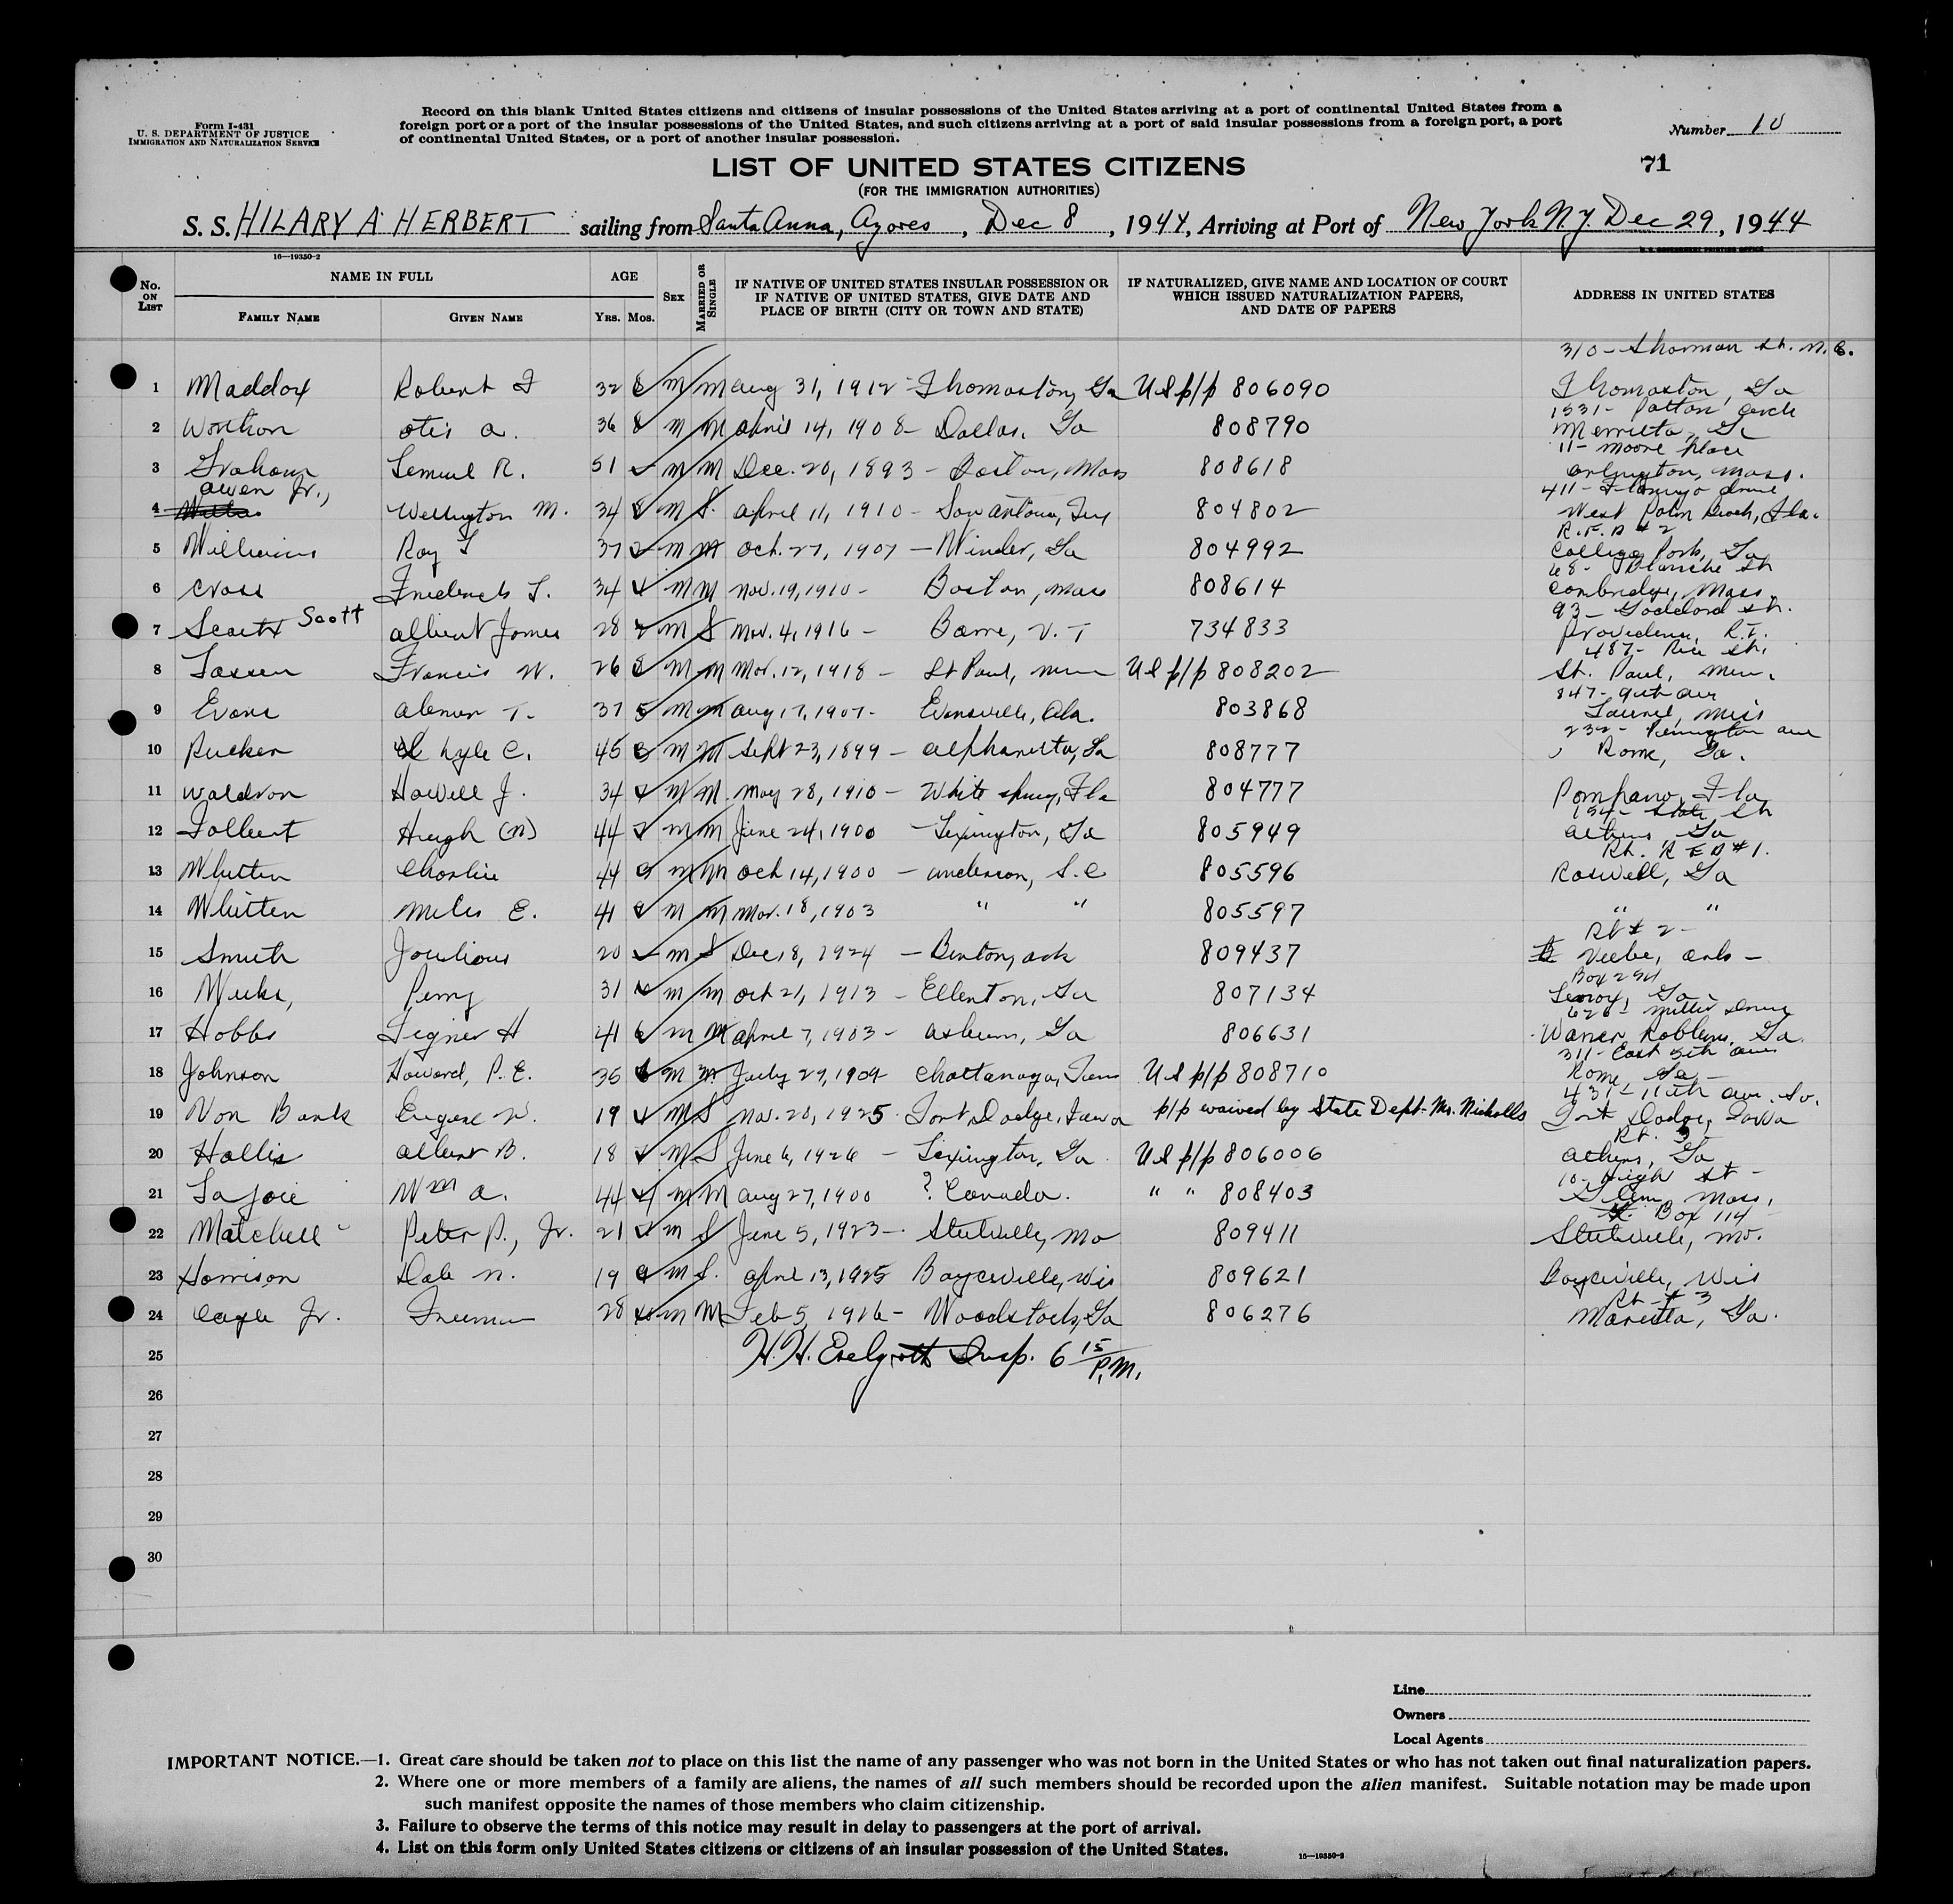 Form I-431
U. S. DEPARTMENT OF JUSTICE
IMMIGRATION AND NATURALIZATION SERVICE
Record on this blank United States citizens and citizens of insular possessions of the United States arriving at a port of continental United States from a
foreign port or a port of the insular possessions of the United States, and such citizens arriving at a port of said insular possessions from a foreign port, a port
of continental United States, or a port of another insular possession.
Number 10
71
LIST OF UNITED STATES CITIZENS
(FOR THE IMMIGRATION AUTHORITIES)
S. S. HILARY A HERBERT sailing from Santa Anna, Azores, Dec 8, 1944, Arriving at Port of New York N.Y. Dec 29, 1944
16—19350-2
No. ON LIST
NAME IN FULL
FAMILY NAME
GIVEN NAME
AGE
YRS. MOS.
SEX
MARRIED OR SINGLE
IF NATIVE OF UNITED STATES INSULAR POSSESSION OR
IF NATIVE OF UNITED STATES, GIVE DATE AND
PLACE OF BIRTH (CITY OR TOWN AND STATE)
IF NATURALIZED, GIVE NAME AND LOCATION OF COURT
WHICH ISSUED NATURALIZATION PAPERS,
AND DATE OF PAPERS
ADDRESS IN UNITED STATES
310 - St. N.E.
1 Maddox Robert F 32 M M Aug 31, 1912 - Thomaston, Ga US p/p 806090 Thomaston, Ga
1531 - Patton Circle
2 Otis A. 36 8 M M April 14, 1908 - Dallas, Ga 808790
11 - Moore Place
3 Graham Lemuel R. 51 M M Dec. 20, 1893 - Boston, Mass 808618 Arlington, Mass.
Owen Jr.,
411 - Drive
4 Wellington M. 34 8 M S. April 11, 1910 - San Antonio, Tex 804802 West Palm Beach, Fla.
R.F.D # 2
5 Williams Roy 37 2 M M Oct. 27, 1907 - Winder, Ga 804992 College Park, Ga
68 - Blanche St
6 Cross Frederick 34 M M Nov. 19, 1910 - Boston, Mass 808614 Cambridge, Mass.
93 - Goddard St.
7 Scott Albert James 28 M S Nov. 4, 1916 - Barre, V. T 734833 Providence, R.I.
487 - Rice St.
8 Francis W. 26 M M Mar. 12, 1918 - St Paul, Minn US p/p 808202 St. Paul, Minn.
847 - 9th Ave
9 Evans T. 37 5 M M Aug 17, 1907 - Ala. 803868 Laurel, Miss
232 - Pennington Ave
10 Rucker Lyle C. 45 3 M M Sept 23, 1899 - Alpharetta, Ga 808777 Rome, Ga.
11 Waldron Howell J. 34 M M. May 28, 1910 - White Spring, Fla 804777 Pompano, Fla
State St
12 Tolbert Hugh (N) 44 M M June 24, 1900 - Lexington, Ga 805949 Athens, Ga
Rt. R F D #1.
13 Whitten Charlie 44 M M Oct 14, 1900 - Anderson, S.C 805596 Roswell, Ga
14 Whitten Miles E. 41 9 M M Mar. 18, 1903 " " 805597 " "
Rt # 2 -
15 Smith Joulious 20 M S Dec 18, 1924 - Benton, Ark 809437 Beebe, Ark -
Box 294
16 Weeks, Perry 31 M M Oct 21, 1913 - Ellenton, Ga 807134 Lenox, Ga -
626 - Miller Drive
17 Hobbs H 41 M M April 7, 1903 - Ashburn, Ga 806631 Warner Robbins, Ga.
311 - East 5th Ave
18 Johnson Howard, P. E. 35 M M July 29, 1909 Chattanooga, Tenn US p/p 808710 Rome, Ga -
431 - 11th Ave. So.
19 Von Bank Eugene W. 19 M S Nov. 20, 1925 Fort Dodge, Iowa p/p waived by State Dept. Mr. Nicholls Fort Dodge, Iowa
Rt. 3
20 Hollis Albert B. 18 M S June 6, 1926 - Lexington, Ga. US p/p 806006 Athens, Ga
10 - High St -
21 La Joie Wm A. 44 4 M M Aug 27, 1900 ? Canada. " " 808403 Salem, Mass.
Box 114
22 Matchell Peter P., Jr. 21 M S June 5, 1923 - Steelville, Mo 809411 Steelville, Mo.
23 Harrison Dale N. 19 M S. April 13, 1925 Boyceville, Wis 809621 Boyceville, Wis
Rt - # 3
24 Cagle Jr. Freeman 28 10 M M Feb 5, 1916 - Woodstock, Ga 806276 Marietta, Ga.
25 H. H. Insp. 6 15 P.M.
26
27
28
29
30
Line
Owners
Local Agents
IMPORTANT NOTICE.—1. Great care should be taken not to place on this list the name of any passenger who was not born in the United States or who has not taken out final naturalization papers.
2. Where one or more members of a family are aliens, the names of all such members should be recorded upon the alien manifest. Suitable notation may be made upon
such manifest opposite the names of those members who claim citizenship.
3. Failure to observe the terms of this notice may result in delay to passengers at the port of arrival.
4. List on this form only United States citizens or citizens of an insular possession of the United States.
16—19350-2